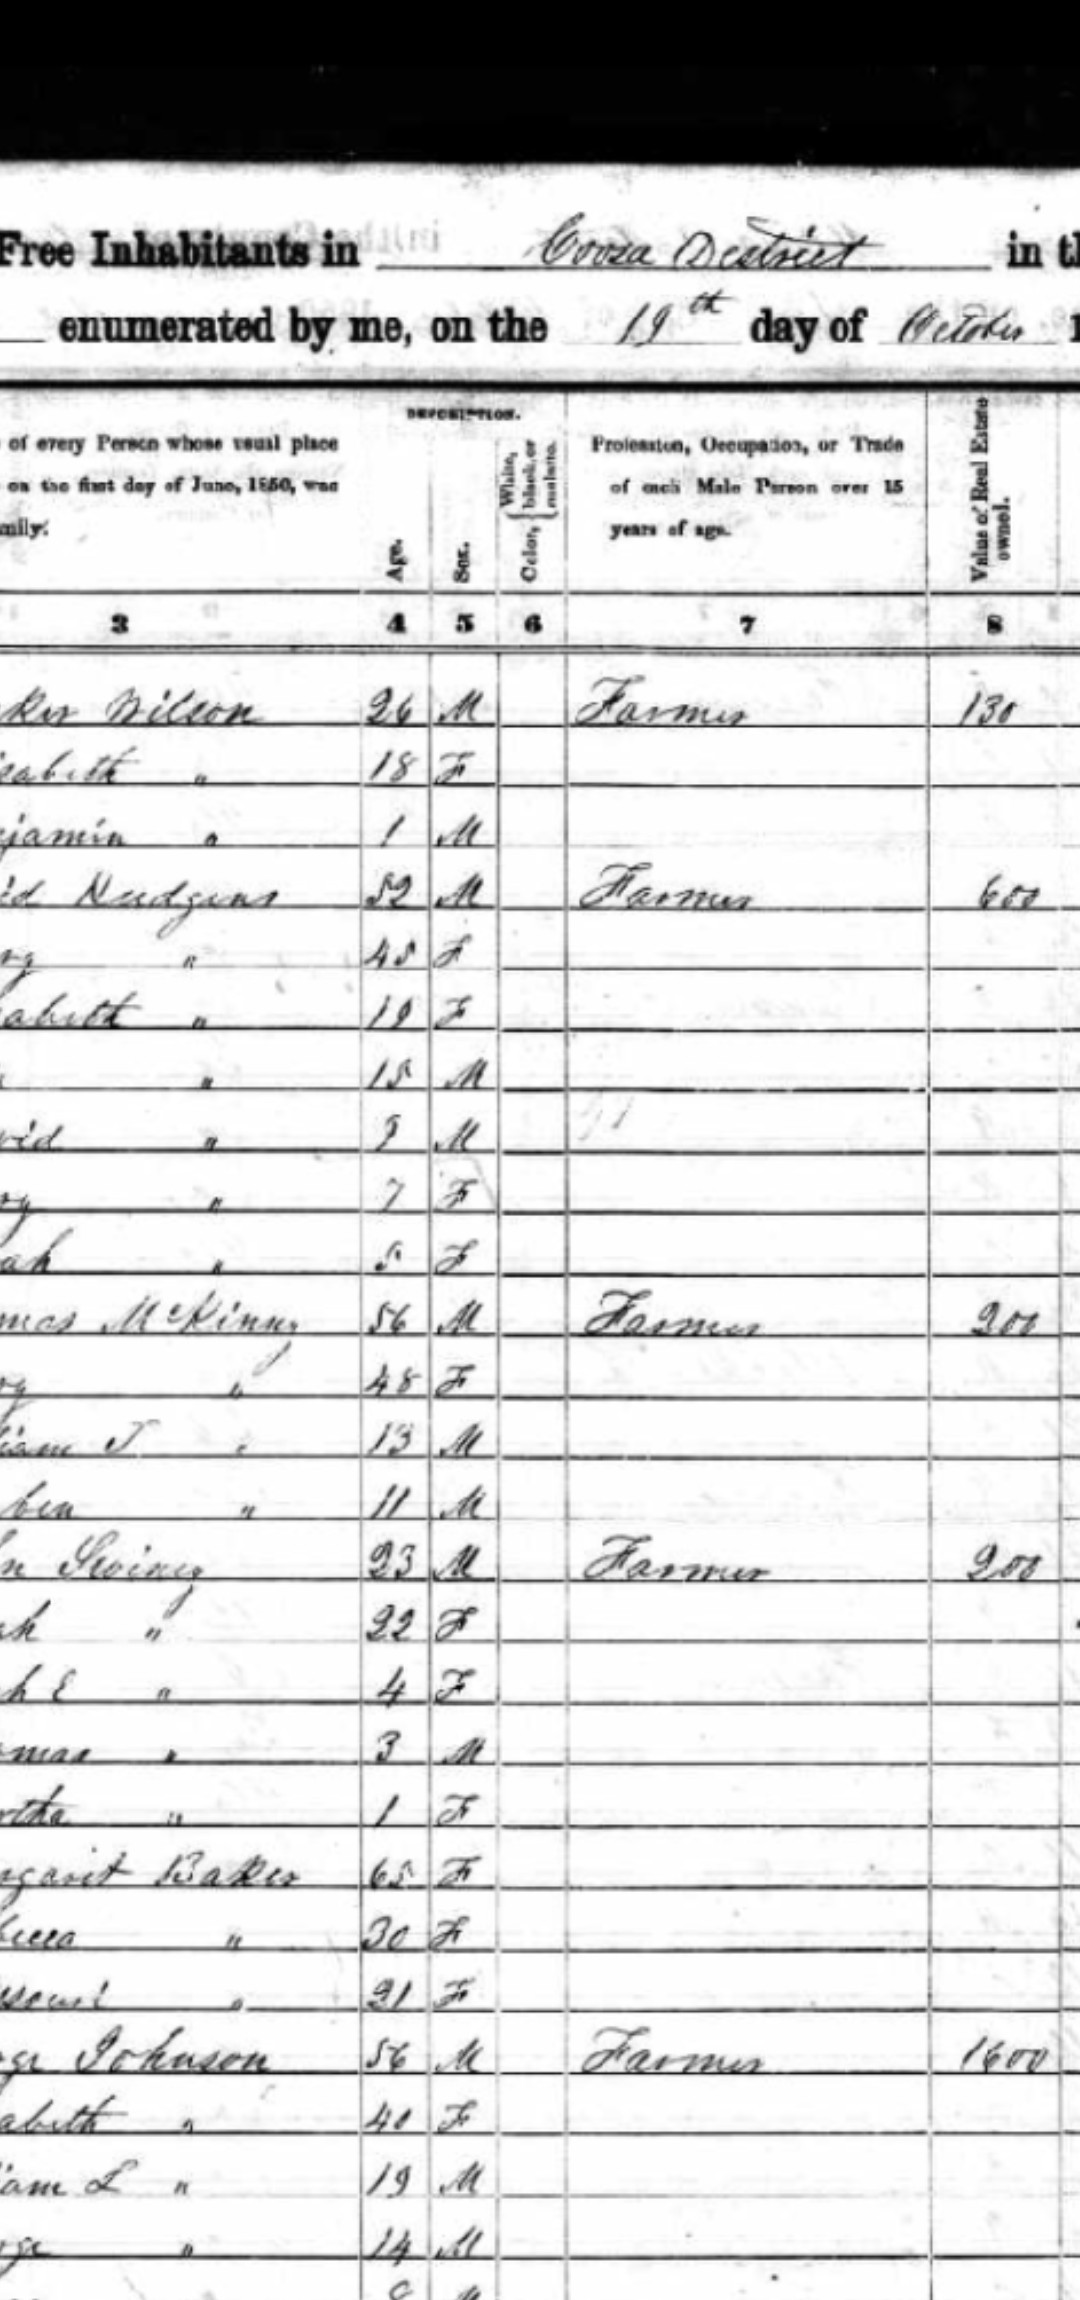 Free Inhabitants in Coosa District in th
enumerated by me, on the 19th day of October 1
DESCRIPTION.
of every Person whose usual place
on the first day of June, 1850, was
mily.
Age.
Sex.
Color, { White, black, or mulatto.
Profession, Occupation, or Trade
of each Male Person over 15
years of age.
Value of Real Estate owned.
3 4 5 6 7 8
ker Wilson 26 M Farmer 130
sabeth " 18 F
jamin " 1 M
id Hudgins 52 M Farmer 600
ry " 45 F
abeth " 19 F
" 15 M
vid " 9 M
ry " 7 F
ah " 5 F
mas McKinny 56 M Farmer 200
ry " 48 F
iam J " 13 M
ben " 11 M
n Swiney 23 M Farmer 200
ah " 22 F
h E " 4 F
omas " 3 M
rtha " 1 F
rgaret Baker 65 F
becca " 30 F
ssouri " 21 F
rge Johnson 56 M Farmer 1600
abeth " 40 F
iam L " 19 M
rge " 14 M
M